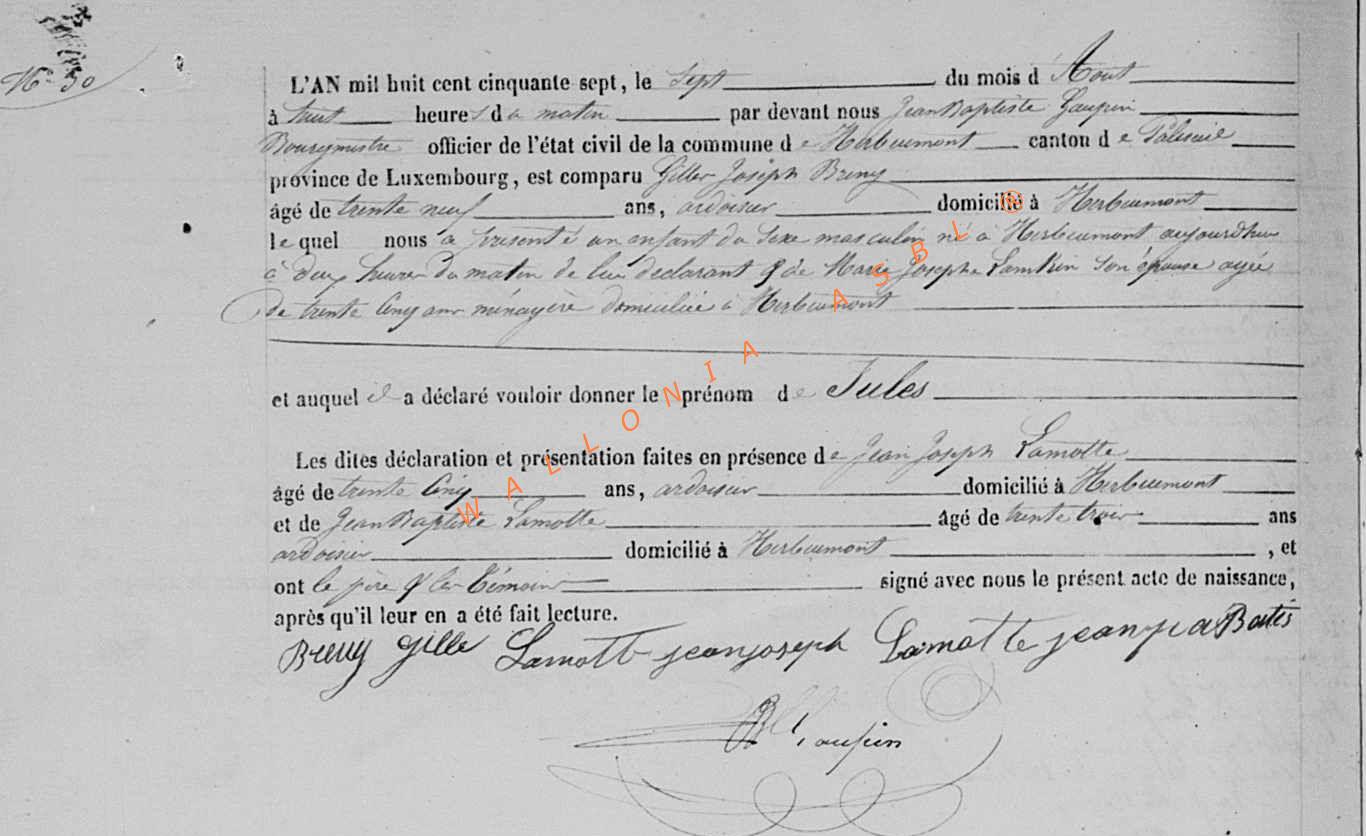 N° 30
L'AN mil huit cent cinquante sept, le sept du mois d'Aout
à huit heures du matin par devant nous Jean Baptiste Gaupin
Bourgmestre officier de l'état civil de la commune de Herbeumont canton de Paliseul
province de Luxembourg, est comparu Gilles Joseph Breny
âgé de trente neuf ans, ardoisier domicilié à Herbeumont
lequel nous a présenté un enfant du sexe masculin né à Herbeumont aujourdhui
à deux heures du matin de lui déclarant & de Marie Josephe Lamkin son épouse agée
de trente cinq ans ménagère domiciliée à Herbeumont
et auquel il a déclaré vouloir donner le prénom de Jules
Les dites déclaration et présentation faites en présence de Jean Joseph Lamotte
âgé de trente cinq ans, ardoisier domicilié à Herbeumont
et de Jean Baptiste Lamotte âgé de trente trois ans
ardoisier domicilié à Herbeumont, et
ont le père & les témoins signé avec nous le présent acte de naissance,
après qu'il leur en a été fait lecture.
Breny gille Lamott jeanjoseph Lamotte jean
Gaupin
WALLONIA ASBL ®